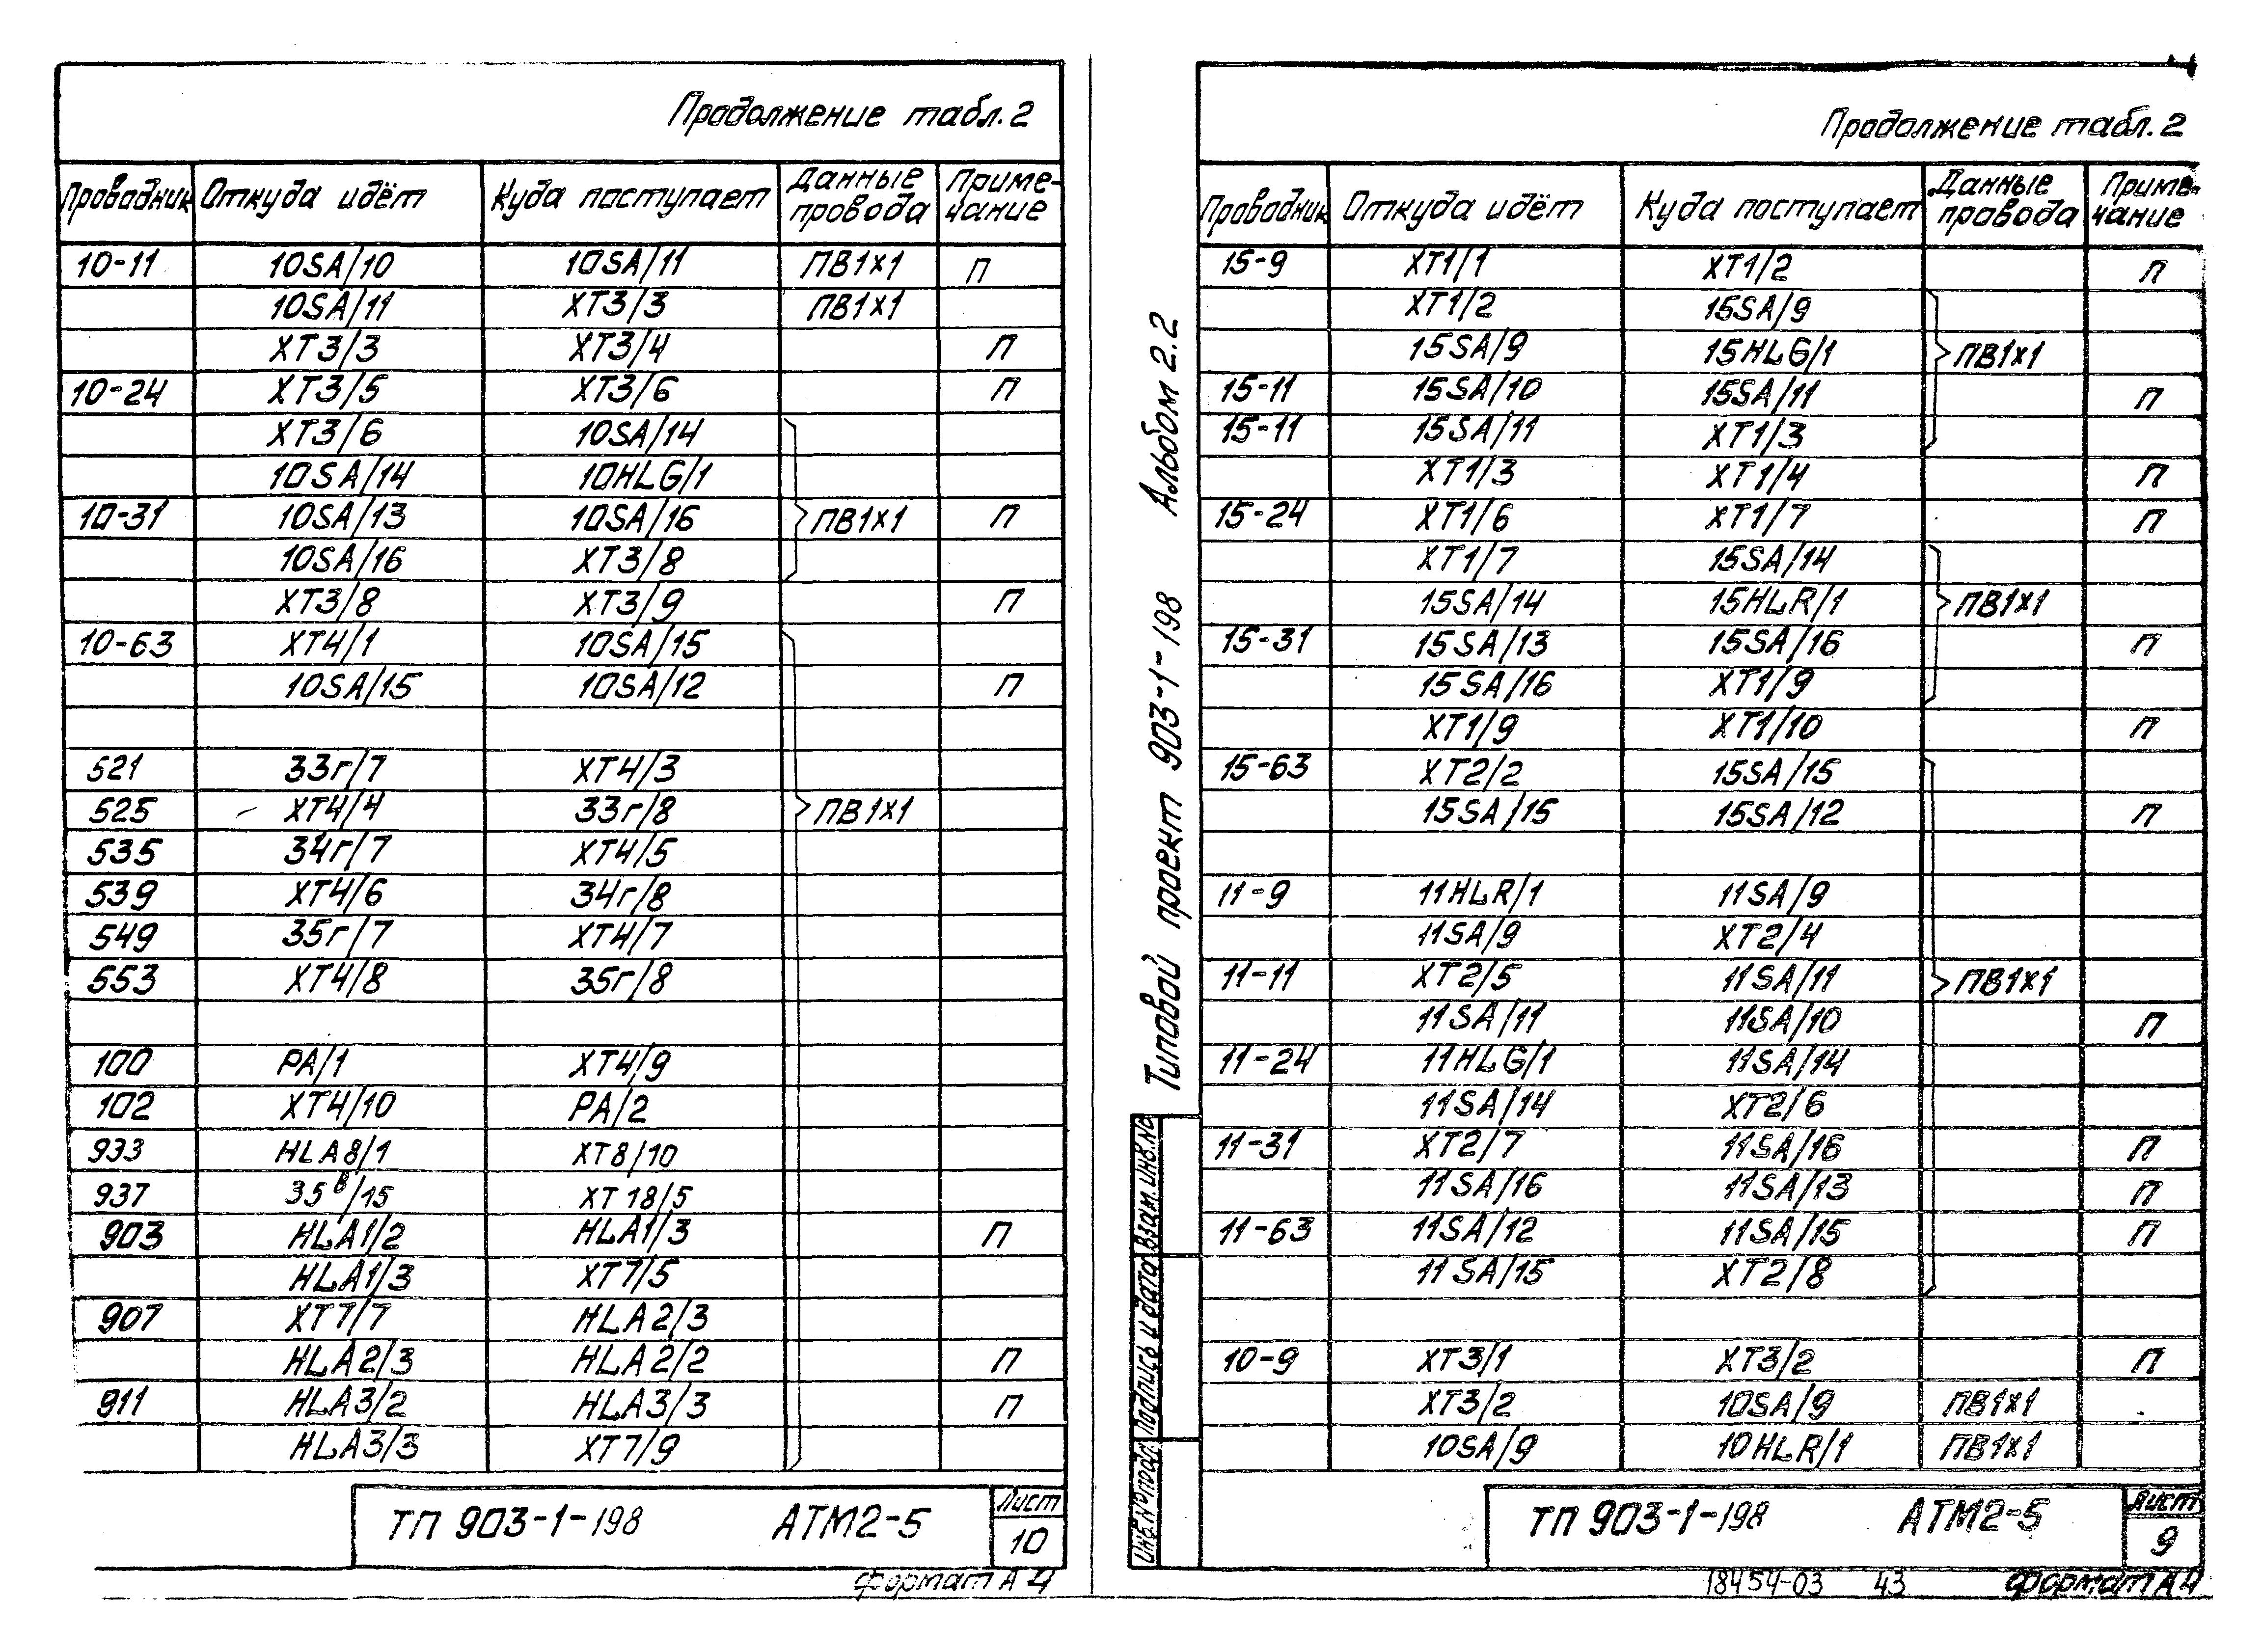 Продолжение табл. 2
Проводник Откуда идёт Куда поступает Данные провода Приме-чание
10-11 10SA/10 10SA/11 ПВ1х1 П
10SA/11 XT3/3 ПВ1х1
XT3/3 XT3/4 П
10-24 XT3/5 XT3/6 П
XT3/6 10SA/14
10SA/14 10HLG/1
10-31 10SA/13 10SA/16 ПВ1х1 П
10SA/16 XT3/8
XT3/8 XT3/9 П
10-63 XT4/1 10SA/15
10SA/15 10SA/12 П
521 33г/7 XT4/3
525 XT4/4 33г/8 ПВ1х1
535 34г/7 XT4/5
539 XT4/6 34г/8
549 35г/7 XT4/7
553 XT4/8 35г/8
100 PA/1 XT4/9
102 XT4/10 PA/2
933 HLA8/1 XT8/10
937 35в/15 XT18/5
903 HLA1/2 HLA1/3 П
HLA1/3 XT7/5
907 XT7/7 HLA2/3
HLA2/3 HLA2/2 П
911 HLA3/2 HLA3/3 П
HLA3/3 XT7/9
ТП 903-1-198 АТМ2-5 Лист 10
Формат А4
Типовой проект 903-1-198 Альбом 2.2
Инв.№ подл. Подпись и дата Взам.инв.№
Продолжение табл. 2
Проводник Откуда идёт Куда поступает Данные провода Приме-чание
15-9 XT1/1 XT1/2 П
XT1/2 15SA/9
15SA/9 15HLG/1 ПВ1х1
15-11 15SA/10 15SA/11 П
15-11 15SA/11 XT1/3
XT1/3 XT1/4 П
15-24 XT1/6 XT1/7 П
XT1/7 15SA/14
15SA/14 15HLR/1 ПВ1х1
15-31 15SA/13 15SA/16 П
15SA/16 XT1/9
XT1/9 XT1/10 П
15-63 XT2/2 15SA/15
15SA/15 15SA/12 П
11-9 11HLR/1 11SA/9
11SA/9 XT2/4
11-11 XT2/5 11SA/11 ПВ1х1
11SA/11 11SA/10 П
11-24 11HLG/1 11SA/14
11SA/14 XT2/6
11-31 XT2/7 11SA/16 П
11SA/16 11SA/13 П
11-63 11SA/12 11SA/15 П
11SA/15 XT2/8
10-9 XT3/1 XT3/2 П
XT3/2 10SA/9 ПВ1х1
10SA/9 10HLR/1 ПВ1х1
ТП 903-1-198 АТМ2-5 Лист 9
18454-03 43 Формат А4